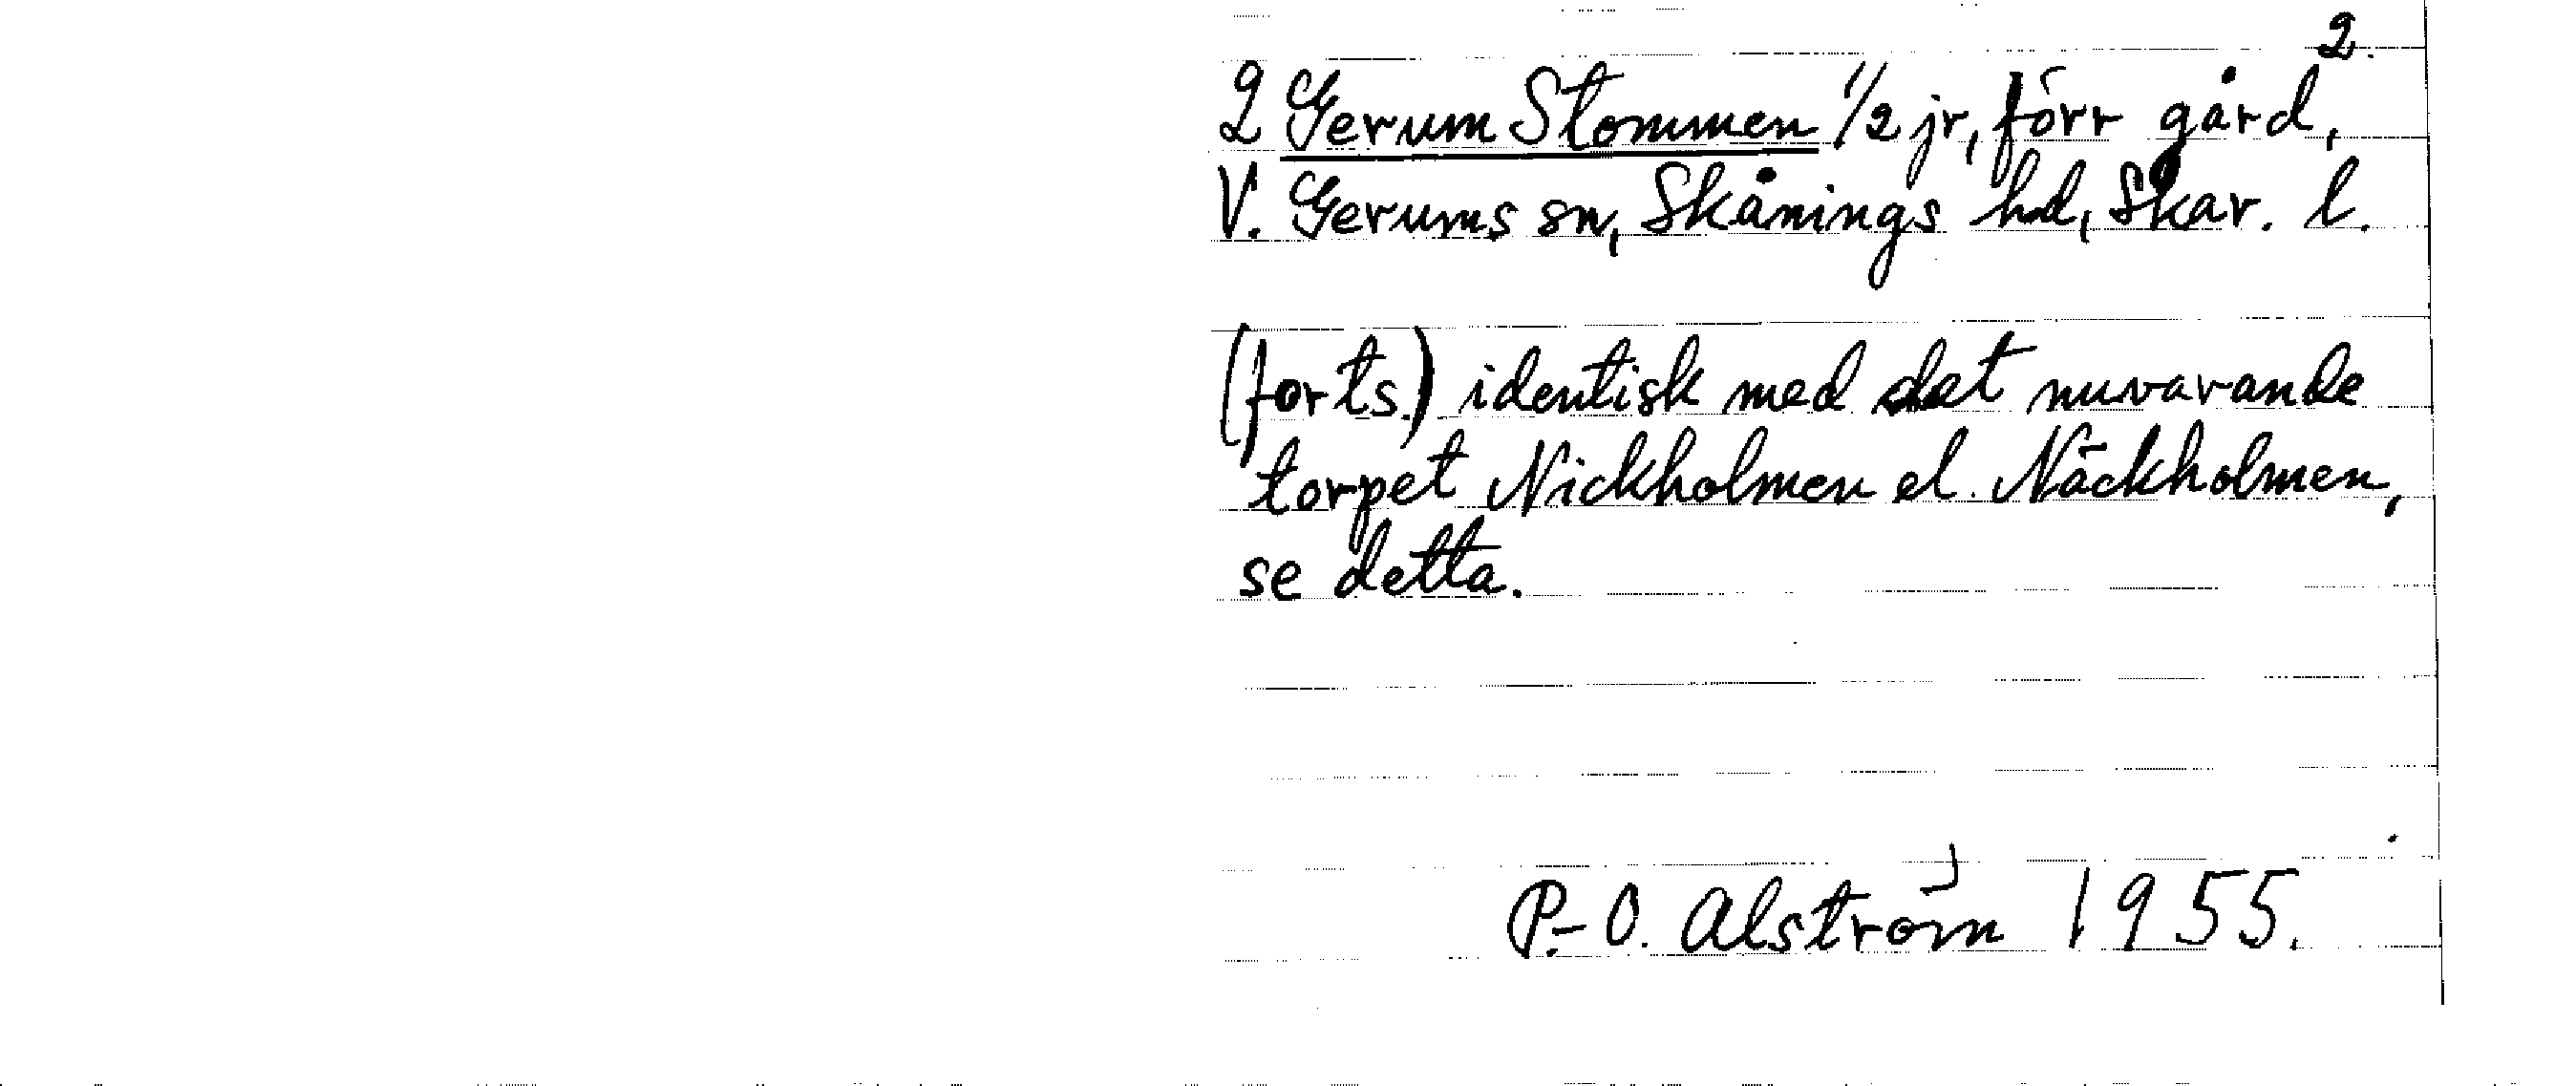 2.
2 Gerum Stommen 1/2 jr, förr gård,
V. Gerums sn, Skånings hd, Skar. l.
(forts.) identisk med det nuvarande
torpet Nickholmen el. Näckholmen,
se detta.
P.-O. Alström 1955.